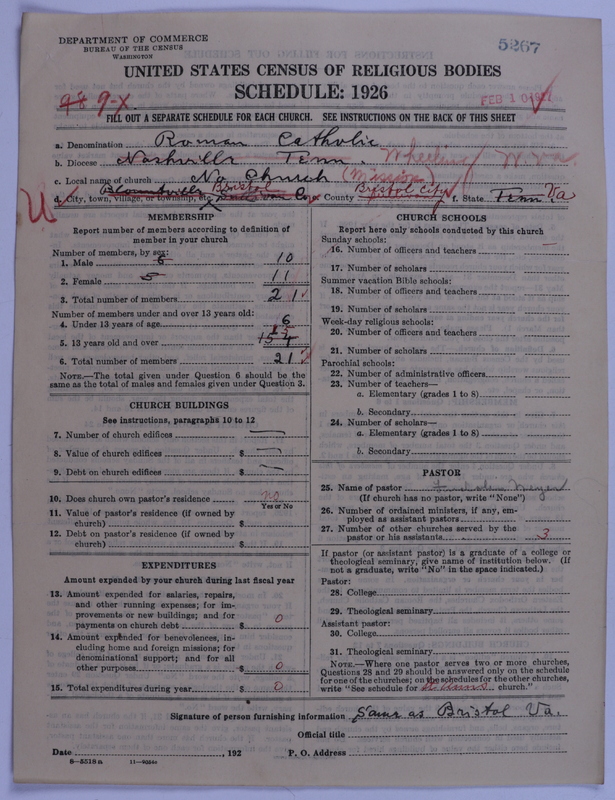 DEPARTMENT OF COMMERCE
BUREAU OF THE CENSUS
WASHINGTON
5267
UNITED STATES CENSUS OF RELIGIOUS BODIES
SCHEDULE: 1926
9-X
FEB 1
FILL OUT A SEPARATE SCHEDULE FOR EACH CHURCH. SEE INSTRUCTIONS ON THE BACK OF THIS SHEET
a. Denomination Roman Catholic
b. Diocese Nashville Tenn. Wheeling W. Va.
c. Local name of church No Church (Mission)
d. City, town, village, or township, etc. Blountville Bristol e. County Bristol City f. State Tenn Va
U
MEMBERSHIP
Report number of members according to definition of member in your church
Number of members, by sex:
1. Male 10
2. Female 11
3. Total number of members 21
Number of members under and over 13 years old:
4. Under 13 years of age 6
5. 13 years old and over 15
6. Total number of members 21
NOTE.—The total given under Question 6 should be the same as the total of males and females given under Question 3.
CHURCH BUILDINGS
See instructions, paragraphs 10 to 12
7. Number of church edifices —
8. Value of church edifices $ —
9. Debt on church edifices $ —
10. Does church own pastor's residence no
Yes or No
11. Value of pastor's residence (if owned by church) $
12. Debt on pastor's residence (if owned by church) $
EXPENDITURES
Amount expended by your church during last fiscal year
13. Amount expended for salaries, repairs, and other running expenses; for improvements or new buildings; and for payments on church debt $ 0
14. Amount expended for benevolences, including home and foreign missions; for denominational support; and for all other purposes $ 0
15. Total expenditures during year $ 0
CHURCH SCHOOLS
Report here only schools conducted by this church
Sunday schools:
16. Number of officers and teachers —
17. Number of scholars
Summer vacation Bible schools:
18. Number of officers and teachers
19. Number of scholars
Week-day religious schools:
20. Number of officers and teachers
21. Number of scholars
Parochial schools:
22. Number of administrative officers
23. Number of teachers—
a. Elementary (grades 1 to 8)
b. Secondary
24. Number of scholars—
a. Elementary (grades 1 to 8)
b. Secondary
PASTOR
25. Name of pastor
(If church has no pastor, write "None")
26. Number of ordained ministers, if any, employed as assistant pastors
27. Number of other churches served by the pastor or his assistants 3
If pastor (or assistant pastor) is a graduate of a college or theological seminary, give name of institution below. (If not a graduate, write "No" in the space indicated.)
Pastor:
28. College
29. Theological seminary
Assistant pastor:
30. College
31. Theological seminary
NOTE.—Where one pastor serves two or more churches, Questions 28 and 29 should be answered only on the schedule for one of the churches; on the schedules for the other churches, write "See schedule for St Anns church."
Signature of person furnishing information Same as Bristol Va.
Official title
Date , 192 P. O. Address
8—5518a 11—9035a